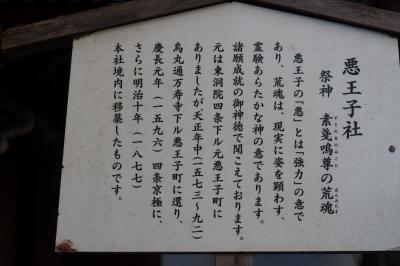 悪王子社
祭神　素戔嗚尊の荒魂
悪王子の「悪」とは「強力」の意で
あり、荒魂は、現実に姿を顕わす、
霊験あらたかな神の意であります。
諸願成就の御神徳で聞こえております。
元は東洞院四条下ル元悪王子町に
ありましたが天正年中(一五七三〜九二)
烏丸通万寿寺下ル悪王子町に還り、
慶長元年（一五九六）四条京極に、
さらに明治十年（一八七七）
本社境内に移築したものです。